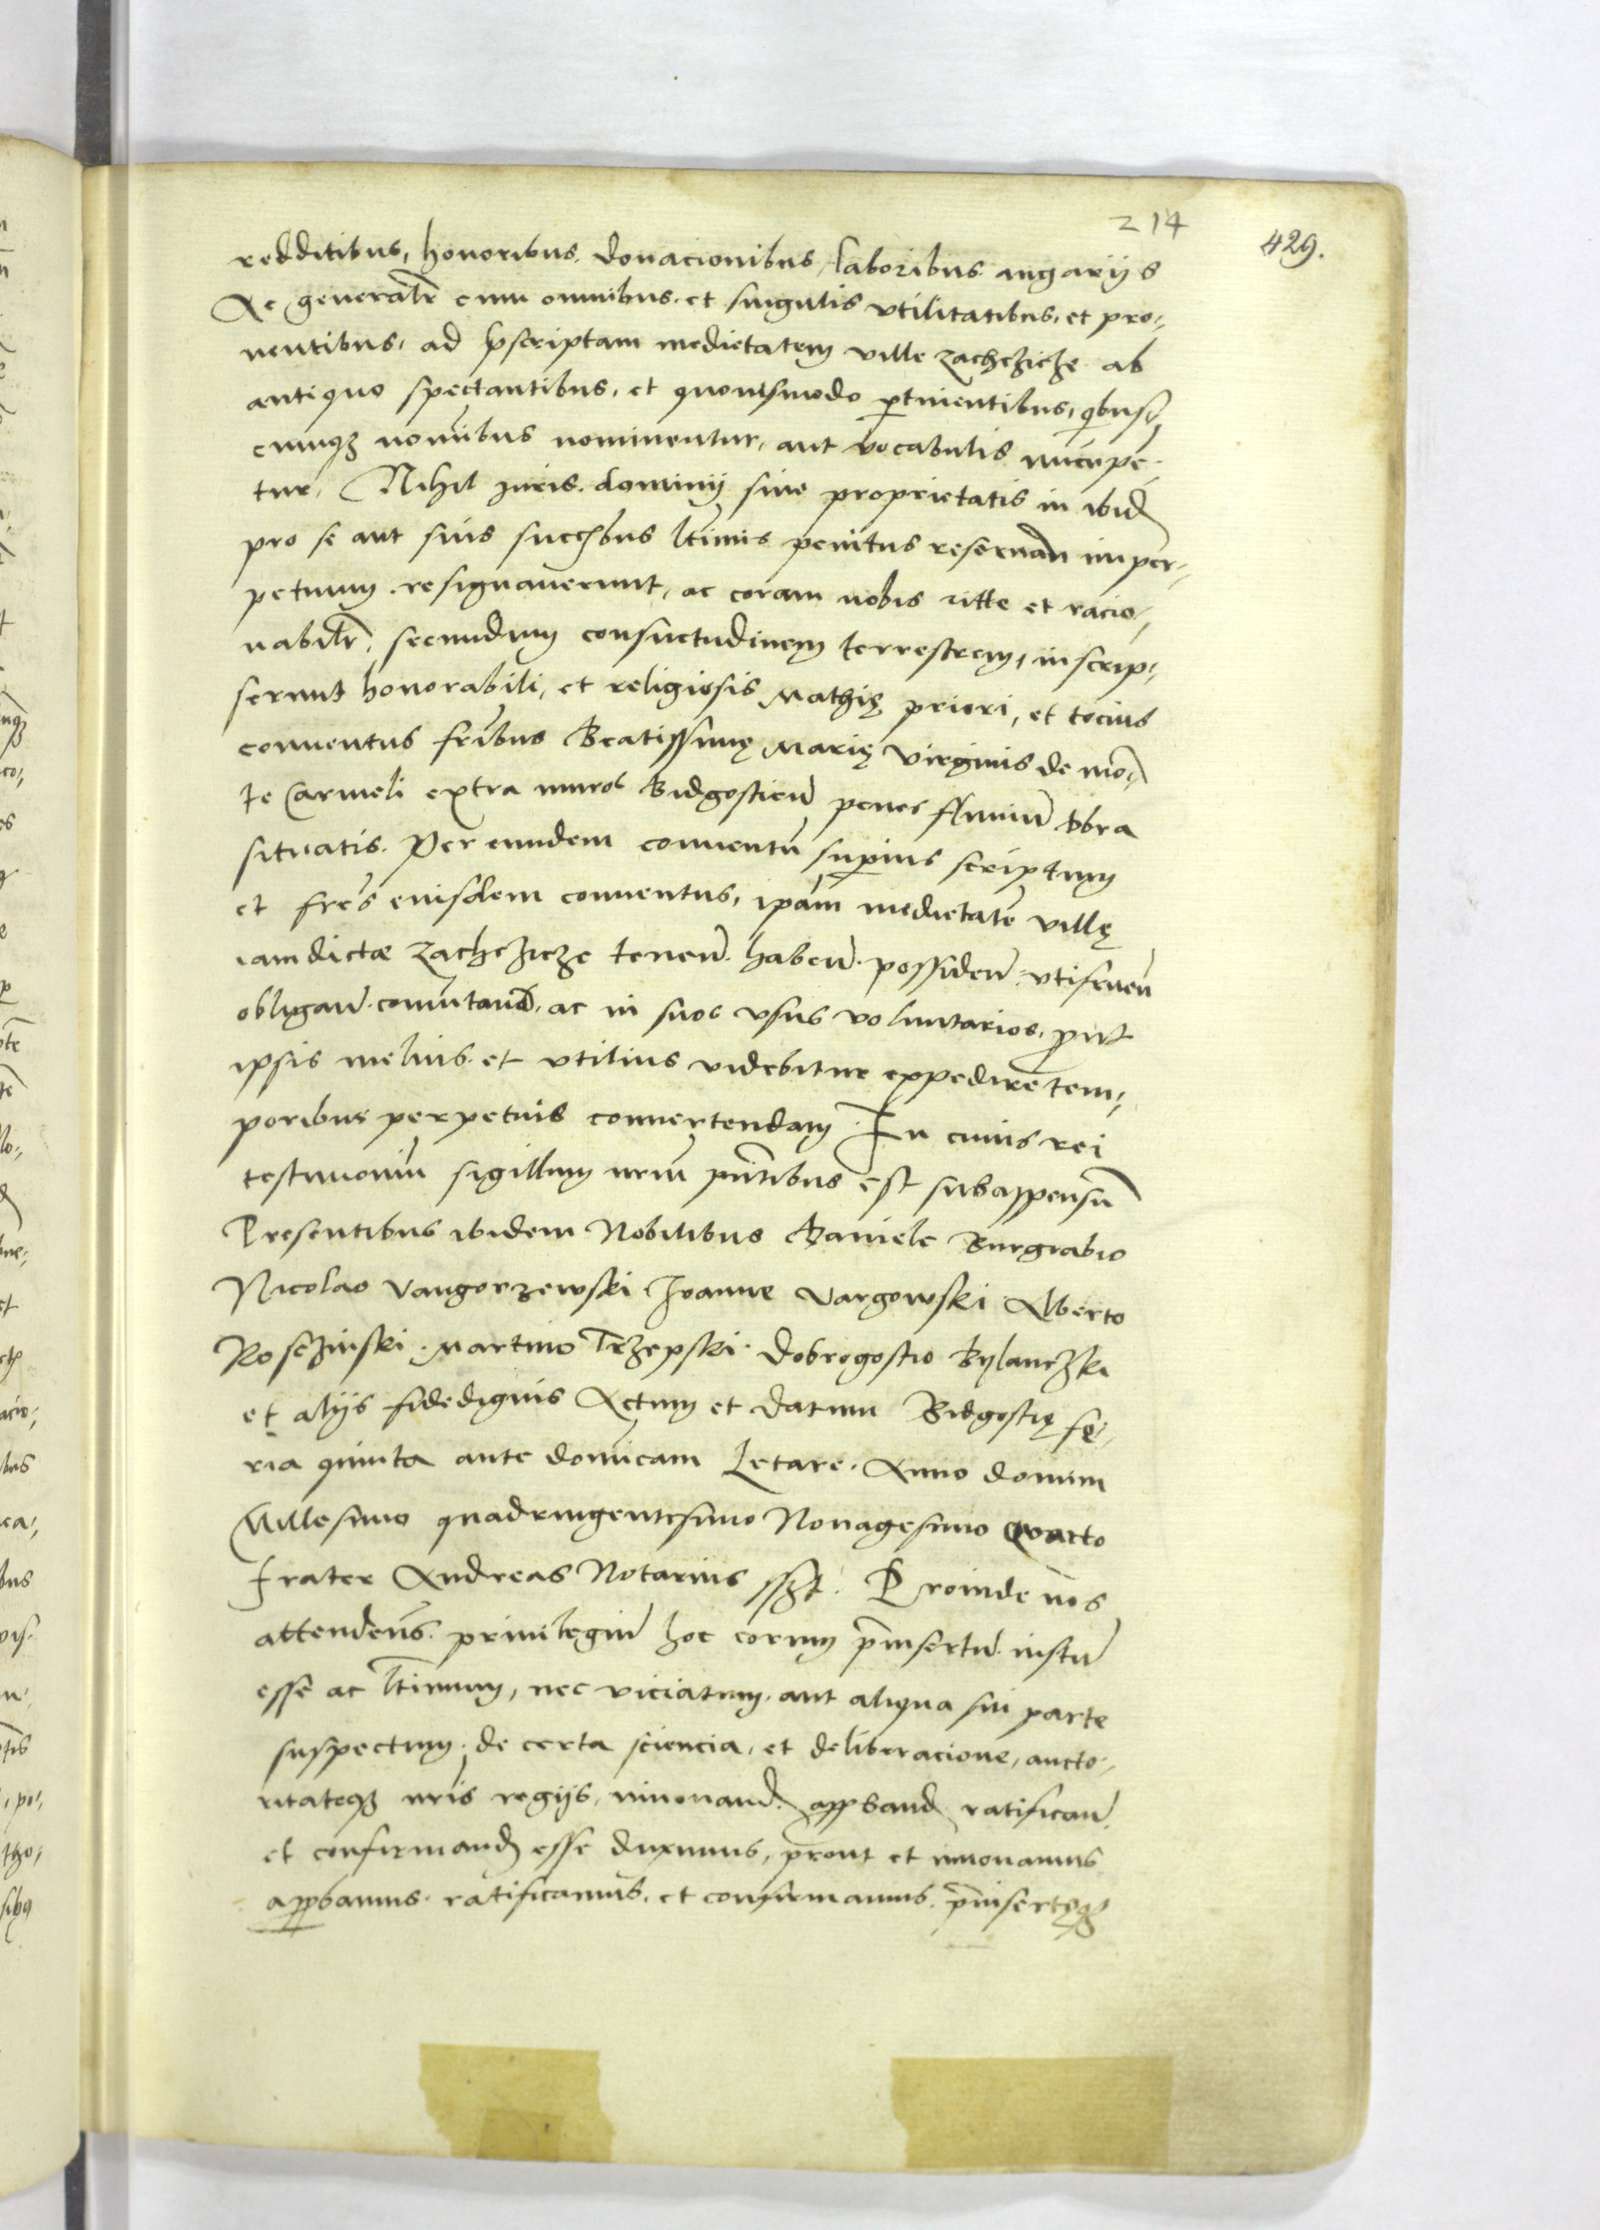 214
429.
redditibus, honoribus. donacionibus, laboribus angarijs
Ac generalr cum omnibus. et singulis vtilitatibus. et pro-
uentibus, ad pscriptam medietatem ville zachczicze ab
antiquo spectantibus, et quouismodo ptinentibus, qbus-
cunq nomibus nominentur, aut vocabulis nucupe-
tur, Nihil iuris. dominij siue proprietatis in ibid
pro se aut suis succbus ltimis penitus reseruan imper-
petuum. resignauerunt, ac coram nobis ritte et racio-
nabilr, secundum consuetudinem terrestrem, inscrip-
serunt honorabili, et religiosis Mathię priori, et tocius
conuentus fribus Beatissimę Marię virginis de mo-
te Carmeli extra muros Bidgosticn penes fluuiu dbra
situatis. Per eundem conuentu superius scriptum
et fres eiusdem conuentus, ipam medietate villę
iam dictæ zachczicze tenen. haben. possiden. vtifruen
obligan. comutand. ac in suos vsus voluntarios, put
ipsis melius et vtilius videbitur expedire tem-
poribus perpetuis conuertendam. In cuius rei
testimoniu sigillum nrm pntibus est subappensu
Presentibus ibidem Nobilibus Daniele Burgrabio
Nicolao Vangorzewski Joanne Vargowski Alberto
Rosczinski. Martino Trzepski. Dobrogostio Bylanczki
et alijs fidedignis Actum et datum Bidgostię fe-
ria quinta ante domicam Letare. Anno domini
Millesimo quadringentesimo Nonagesimo quarto
Frater Andreas Notarius sst. Proinde nos
attendens. priuilegiu hoc eorum pinsertu. iustu
esse ac ltimum, nec viciatum. aut aliqua sui parte
suspectum. de certa sciencia, et deliberacione, aucto-
ritateq nris regijs, innouand. appband ratifican
et confirmand esse duximus, prout et innouamus
appbamus. ratificamus. et confirmamus. pinserteq